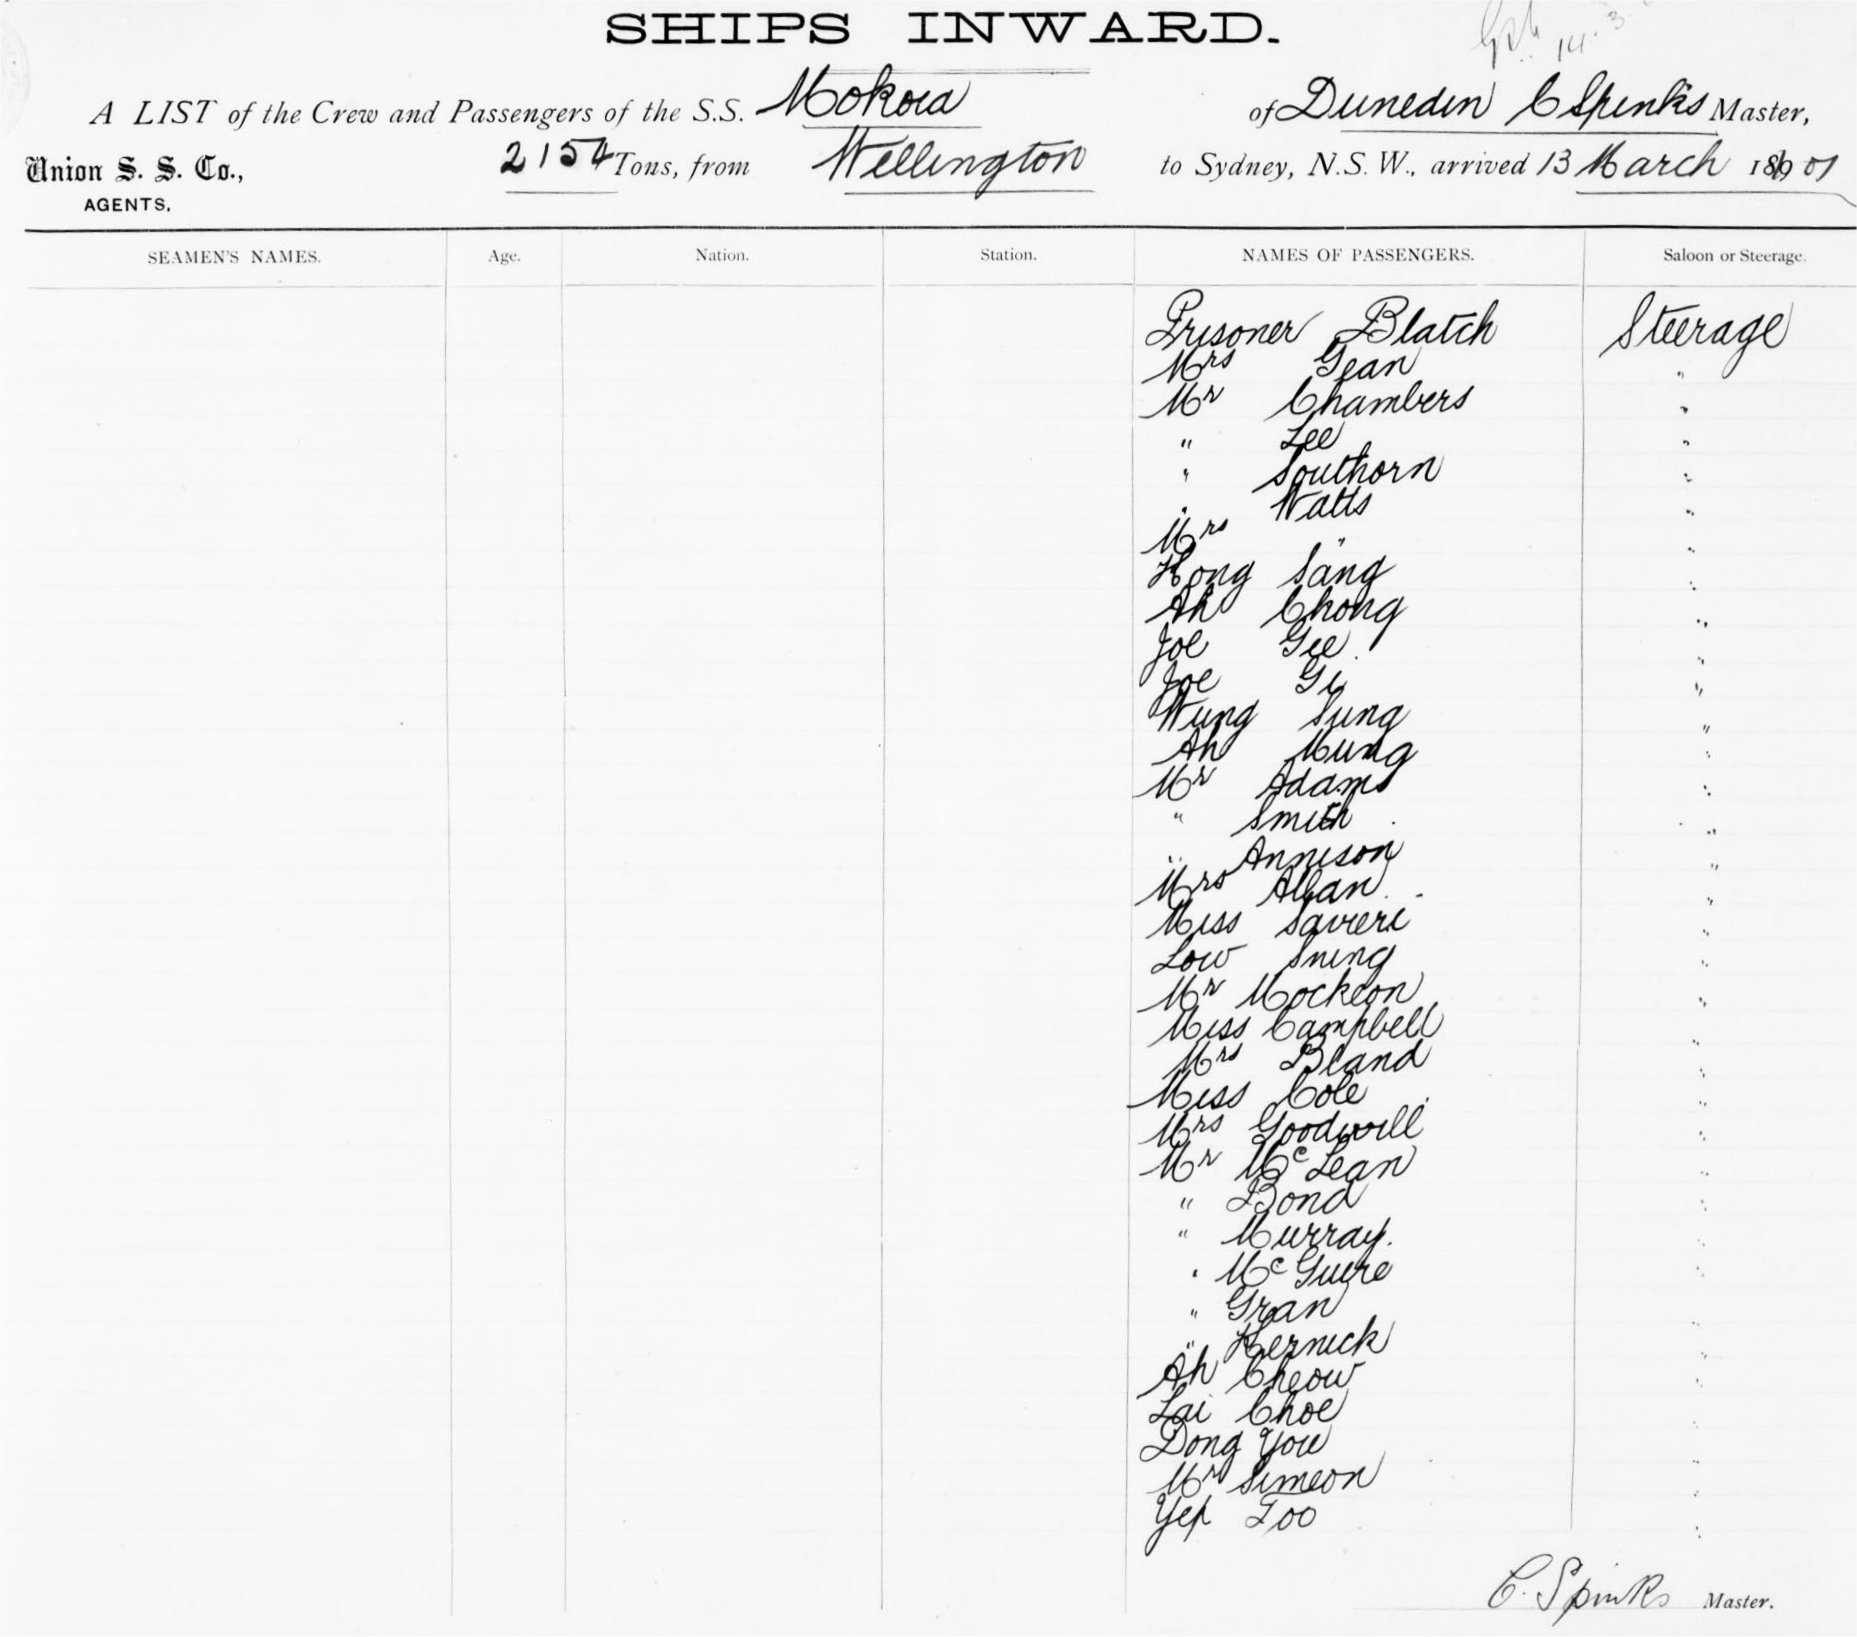 SHIPS INWARD.
14.3
A LIST of the Crew and Passengers of the S.S. Mokoia of Dunedin C Spinks Master,
Union S. S. Co., AGENTS. 2154 Tons, from Wellington to Sydney, N.S.W., arrived 13 March 1901
SEAMEN'S NAMES. Age. Nation. Station. NAMES OF PASSENGERS. Saloon or Steerage.
Prisoner Blatch Steerage
Mrs Gean "
Mr Chambers "
" Lee "
" Southorn "
" Watts "
Mrs " "
Hong Sang "
Ah Chong "
Joe Gee "
Joe Gi "
Wung Sung "
Ah Mung "
Mr Adams "
" Smith "
" Annison "
Mrs Allan "
Miss Savieri "
Low Sning "
Mr Mockeon "
Miss Campbell "
Mrs Bland "
Miss Cole "
Mrs Goodwill "
Mr McLean "
" Bond "
" Murray. "
" McGuire "
" Gran "
" Hernick "
Ah Cheow "
Lai Choe "
Dong You "
Mr Simeon "
Yep Too "
C. Spinks Master.